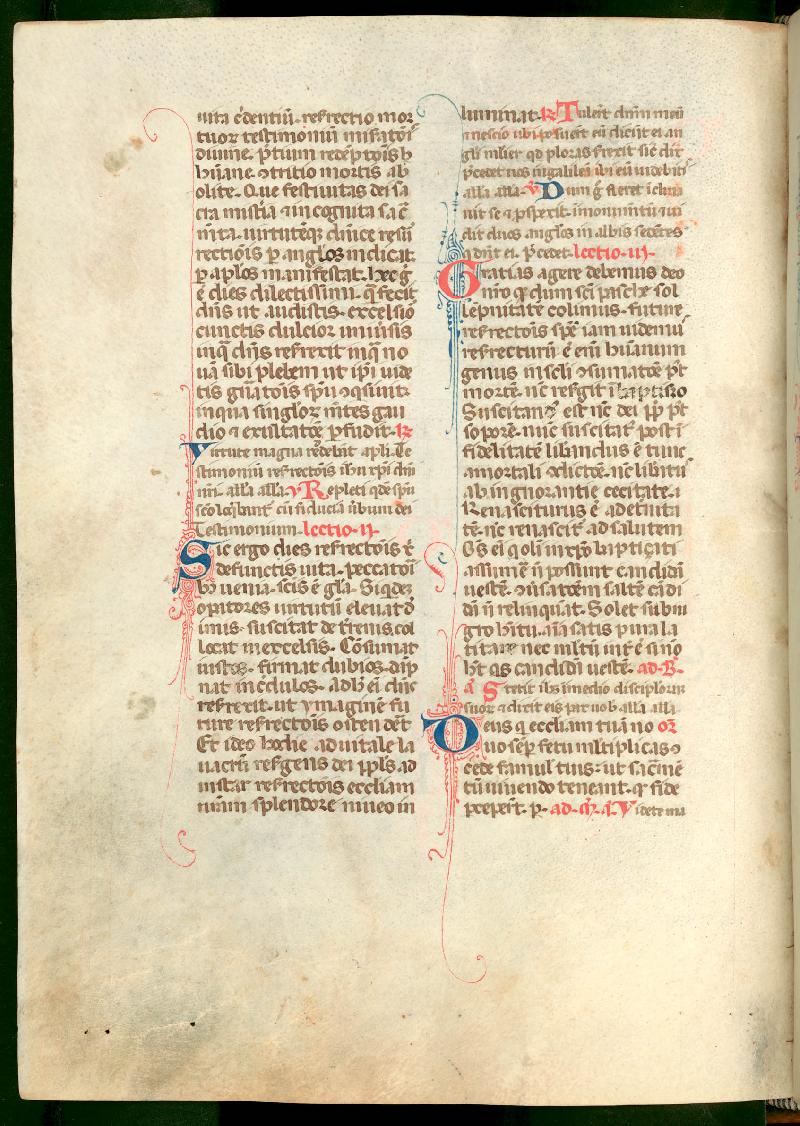 uita c̄dentiū. resr̄ectio mor
tuoꝝ testimoniū misc̄atōi
diuine. p̄tium redēptōis h
hūane ɔtritio mortis ab
olite. Que festiuitas dei sa
cta mist̄ia ⁊ incognita sac̄
m̄ta. uirtuteqꝫ dn̄ice resū
rectiōis ꝑ angl̄os indicat.
ꝑ apl̄os manifestat. hec ḡ
ē dies dilectissimi. q̄ fecit
dn̄s ut audistis. excelsiō
cunctis dulcior uniūsis
in q̄ dn̄s resr̄exit in q̄ no
uā sibi plebem ut ip̄i uide
tis gn̄atōis sp̄u ɔq̄siuit
in qua singl̄oꝝ m̄tes gau
dio ⁊ exultatōe ꝑfudit. ℟
Virtute magna reddebāt apl̄i. Te
stimoniū resr̄ectōis ih̄u xp̄i dn̄i
nr̄i. alla alla. ℣ Repleti qdē sp̄u
sc̄o loq̄bant̄ cū fiducia ūbum dei
Testimonium. lectio. ij.
Sic ergo dies resr̄ectōis ē
defunctis uita. peccatoī
bꝫ uenia. sc̄is ē gl̄a. Siqdeꝫ
oꝑatores uirtutū eleuat d̄
imis. suscitat de t̄renis. col
locat in excelsis. Cōsumat
iustos. firmat dubios. dāp
nat incredulos. adhꝰ ei dn̄c
resr̄exit. ut ymaginē fu
ture resr̄ectōis ostendēt
Et ideo hodie ad uitale la
uacrū resgens dei ppl̄s. ad
instar resr̄ectōis eccliam
nr̄am splendore niueo in
luminat. ℟ Tulerūt dn̄m meū
⁊ nescio ubi posuerūt eū dicūt ei an
gl̄i mulier qd ploras surexit sic̄ dix̄
p̄cedet uos in galileā ibi eū uidebitis
alla alla. ℣ Dum ḡ fleret īclina
uit se ⁊ ꝓspexit. in monumtū ⁊ ui
dit duos angl̄os in albis sedētes
q dn̄t ei. P̄cedet. lectio. iij.
Gratias agere debemus deo
nr̄o qꝛ dum sc̄i pasche sol
lēpnitatē colimus. future
resr̄ectōis spēꝫ iam uidemur
resr̄ecturū ē eni hūanum
genus in sc̄li ɔsumatōe pꝰt
mortē. nc̄ resgit ī baptismo
Suscitandꝰ est nc̄ dei pp̄ pꝰt
soporē. nunc suscitat̄ post ī
fidelitatē libandus ē tunc
a mortali ɔdictōe. nc̄ libatur
ab ingnorantie cecitate. ⁊
Renasciturus ē ad etnita
tē. nc̄ renascit̄ ad salutem
Oēs ei q olī in xp̄o baptiçati
assumē ñ possunt candidā
uestē. ɔuersatōem saltē cādi
dā ñ relinquat. Solet sub in
gro hitu. aīa satis pura la
titare nec mltū int̄ē si no
hꝫt qs candidā uestē. ad. B.
ā Stetit ih̄s in medio discipl̄oruꝫ
suoꝝ ⁊ dixit eis pax uob̄ alla alla
Deus q eccliam tuā no or̄
uo sēp fetu mltiplicas ɔ
cede famul̄ tuis. ut sac̄mē
tū uiuendo teneant. qꝫ fide
ꝑceper̄t. p. ad. m̄. ā. Videte ma